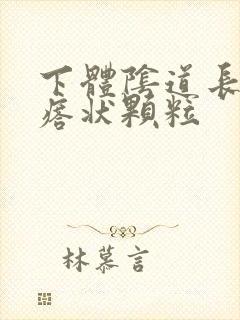 下體陰道長
痞状顆粒
林慕言